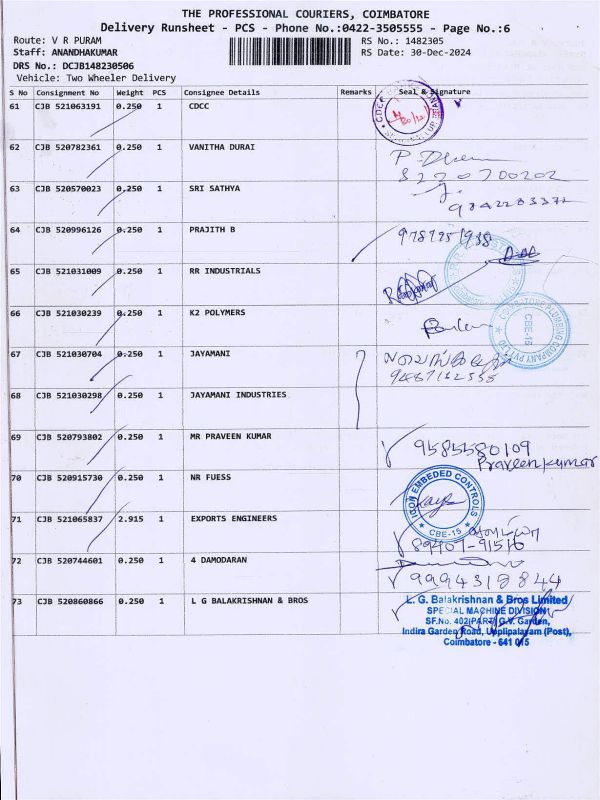 THE PROFESSIONAL COURIERS, COIMBATORE
Delivery Runsheet - PCS - Phone No.:0422-3505555 - Page No.:6
Route: V R PURAM
RS No.: 1482305
Staff: ANANDHAKUMAR
RS Date: 30-Dec-2024
DRS No.: DCJB148230506
Vehicle: Two Wheeler Delivery
S No Consignment No Weight PCS Consignee Details Remarks Seal & Signature
61 CJB 521063191 0.250 1 CDCC
62 CJB 520782361 0.250 1 VANITHA DURAI
63 CJB 520570023 0.250 1 SRI SATHYA
64 CJB 520996126 0.250 1 PRAJITH B
65 CJB 521031009 0.250 1 RR INDUSTRIALS
66 CJB 521030239 0.250 1 K2 POLYMERS
COIMBATORE PLUMBING COMPANY PVT LTD
CBE-15
67 CJB 521030704 0.250 1 JAYAMANI
68 CJB 521030298 0.250 1 JAYAMANI INDUSTRIES
69 CJB 520793802 0.250 1 MR PRAVEEN KUMAR
9585580109
Praveenkumar
70 CJB 520915730 0.250 1 NR FUESS
ICON EMBEDED CONTROLS
* CBE-15 *
71 CJB 521065837 2.915 1 EXPORTS ENGINEERS
89407-91516
72 CJB 520744601 0.250 1 4 DAMODARAN
9994318844
73 CJB 520860866 0.250 1 L G BALAKRISHNAN & BROS
L. G. Balakrishnan & Bros Limited
SPECIAL MACHINE DIVISION
SF.No. 402(PART) G.V. Garden,
Indira Garden Road, Upplipalayam (Post),
Coimbatore - 641 015